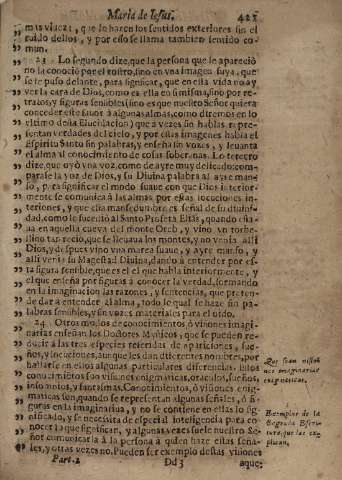 Maria de Iesus. 421
mas viuezi, que lo hazen los sentidos exteriores sin el
ruido dellos, y por esso se llama tambien sentido co-
mun.
23 Lo segundo dize, que la persona que se apareciò
no la conociò por el rostro, sino en vna imagen suya, que
se le puso delante, para significar, que en esta vida no ay
ver la cara de Dios, como es ella en si misma, sino por re-
tratos, y figuras sensibles (sino es que nuestro Señor quiera
conceder este fauor à algunas almas, como diremos en lo
vltimo desta Elucidacion) que à vezes sin hablas repre-
sentan verdades del cielo, y por estas imagenes habla el
Espiritu Santo sin palabras, y enseña sin vozes, y leuanta
el alma al conocimiento de cosas soberanas. Lo tercero
dize, que oyò vna voz, como de ayre muy delicado: com-
parase la voz de Dios, y su Diuina palabra al ayre man-
so, para significar el modo suaue con que Dios interior-
mente se comunica à las almas por estas locuciones in-
teriores, y que esta mansedumbre es señal de su diuini-
dad, como le sucediò al Santo Profeta Elias, quando esta-
ua en aquella cueva del monte Oreb, y vino vn torbe-
llino tan recio, que se lleuaua los montes, y no venia alli
Dios, y despues vino vna marea suaue, y ayre manso, y
alli venia su Magestad Diuina, dando à entender por es-
ta figura sensible, que es el que habla interiormente, y
el que enseña por figuras à conocer la verdad, formando
en la imaginacion las razones, y sentencias, que preten-
de dar à entender al alma, todo lo qual se haze sin pa-
labras sensibles, y sin vozes materiales para el oido.
24 Otros modos de conocimientos ò visiones imagi-
narias enseñan los Doctores Misticos, que se pueden re-
ducir à las tres especies referidas de apariciones, sue-
ños, y locuciones, aunque les dan diferentes nombres, por
hallarse en ellos algunas particulares diferencias. Estos
conocimientos son visiones enigmaticas, oraculos, sueños
insomnios, y fantasmas. Conocimientos, ò visiones enig-
maticas son, quando se representan algunas señales, ò fi-
guras en la imaginaria, y no se contiene en ellas lo sig-
nificado, y se necessita de especial inteligencia para co-
nocer lo que significan, y algunas vezes suele nuestro Se-
ñor comunicarla à la persona à quien haze ellas seña-
les, y otras vezes no. Pueden ser exemplo destas visiones
Part. 2 Dd 3 aque:
Que sean visio-
nes imaginarias
enigmaticas.
Exemplos de la
Sagrada Escri-
tura, que las ex-
plican.